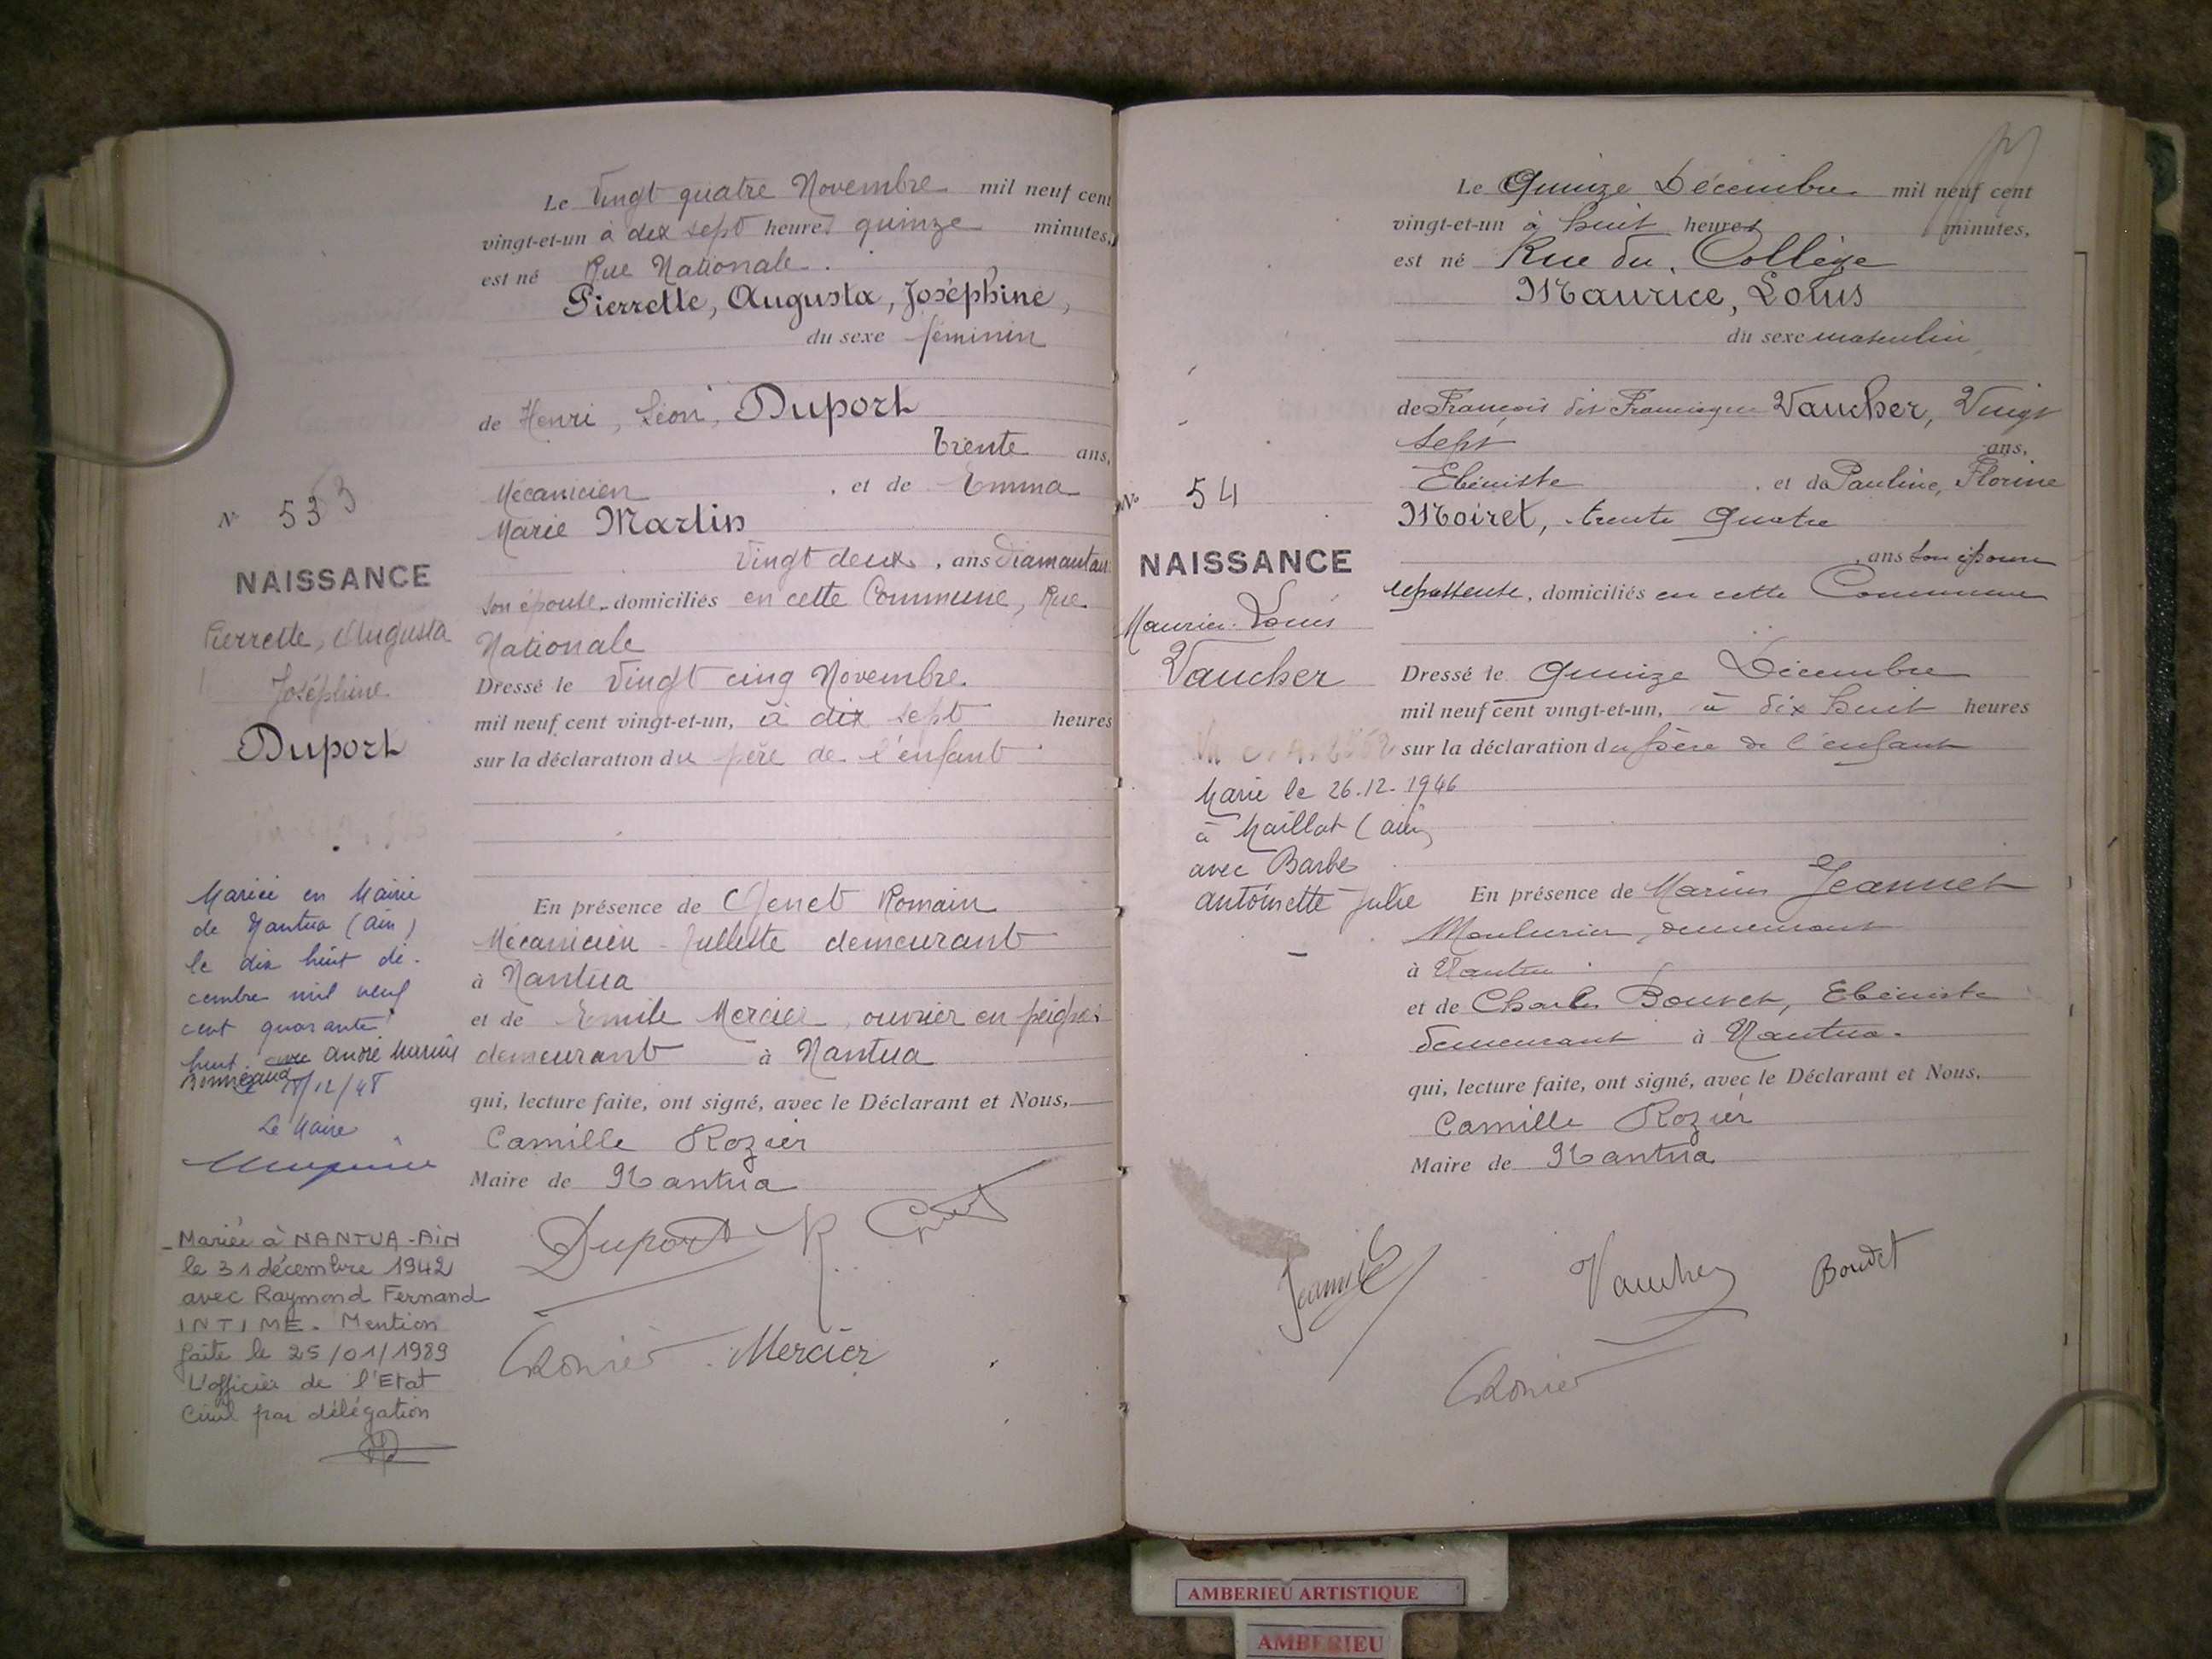 Le Vingt quatre Novembre mil neuf cent
vingt-et-un à dix sept heures quinze minutes,
est né Rue Nationale.
Pierrette, Augusta, Joséphine,
du sexe féminin
de Henri, Léon, Duport
trente ans,
Mécanicien, et de Emma
Marie Martin
Vingt deux, ans
son épouse domiciliés en cette Commune, Rue
Nationale
Dressé le Vingt cinq Novembre
mil neuf cent vingt-et-un, à dix sept heures
sur la déclaration du père de l'enfant
En présence de Genet Romain
Mécanicien demeurant
à Nantua
et de Emile Mercier, ouvrier en peignes
demeurant à Nantua
qui, lecture faite, ont signé, avec le Déclarant et Nous,
Camille Rozier
Maire de Nantua
Duport R Genet
CRozier Mercier
N° 53
53
NAISSANCE
Pierrette, Augusta
Joséphine
Duport
Mariée en Mairie
de Nantua (Ain)
le dix huit dé-
cembre mil neuf
cent quarante
huit avec André
18/12/48
Le Maire
Mariée à NANTUA-AIN
le 31 décembre 1942
avec Raymond Fernand
INTIME. Mention
faite le 25/01/1989
L'officier de l'Etat
Civil par délégation
Le Quinze Décembre mil neuf cent
vingt-et-un à huit heures minutes,
est né Rue du Collège
Maurice, Louis
du sexe masculin
de François dit Francisque Vaucher, Vingt
sept ans,
Ebéniste, et de Pauline, Florine
Moiret, trente quatre
, ans son épouse
repasseuse, domiciliés en cette Commune
Dressé le quinze Décembre
mil neuf cent vingt-et-un, à dix huit heures
sur la déclaration du père de l'enfant
En présence de Marius Jeannet
demeurant
à Nantua
et de Charles Bouvet, Ebéniste
demeurant à Nantua.
qui, lecture faite, ont signé, avec le Déclarant et Nous,
Camille Rozier
Maire de Nantua
Jeannet Vaucher Bouvet
CRozier
N° 54
NAISSANCE
Maurice Louis
Vaucher
Marié le 26.12.1946
à Maillat (Ain)
avec Barbe
Antoinette Julie
AMBERIEU ARTISTIQUE
AMBERIEU